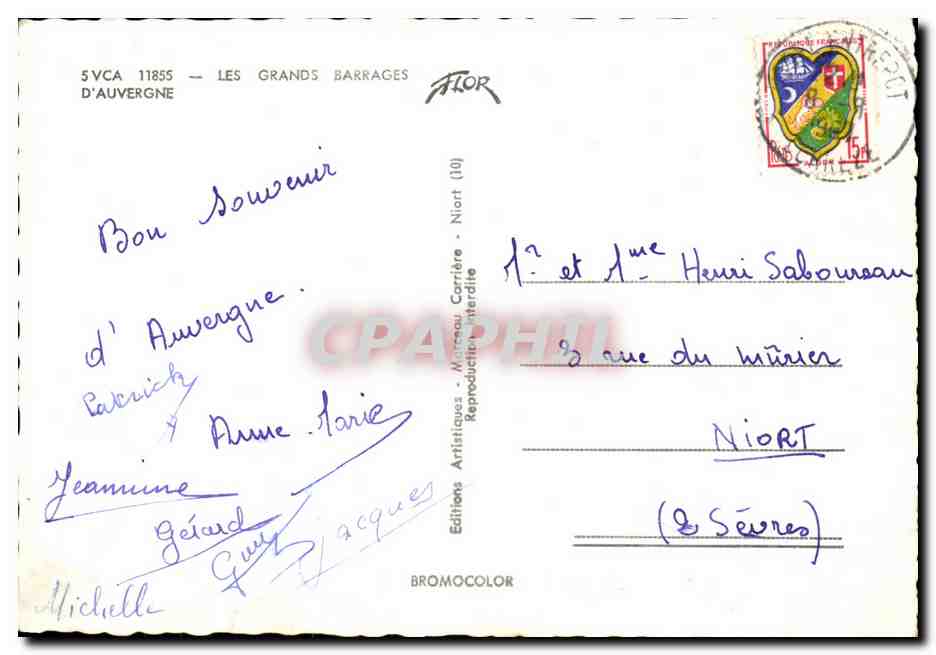 5VCA 11855 — LES GRANDS BARRAGES
D'AUVERGNE
FLOR
REPUBLIQUE FRANÇAISE
15F
Bon Souvenir
d'Auvergne.
Patrick
Anne-Marie
Jeannine
Gérard
Guy
Jacques
Michelle
Editions Artistiques - Marceau Carrière - Niort (10)
Reproduction Interdite
BROMOCOLOR
Mr et Mme Henri Saboureau
3 rue du mûrier
NIORT
(2 Sèvres)
CPAPHIL